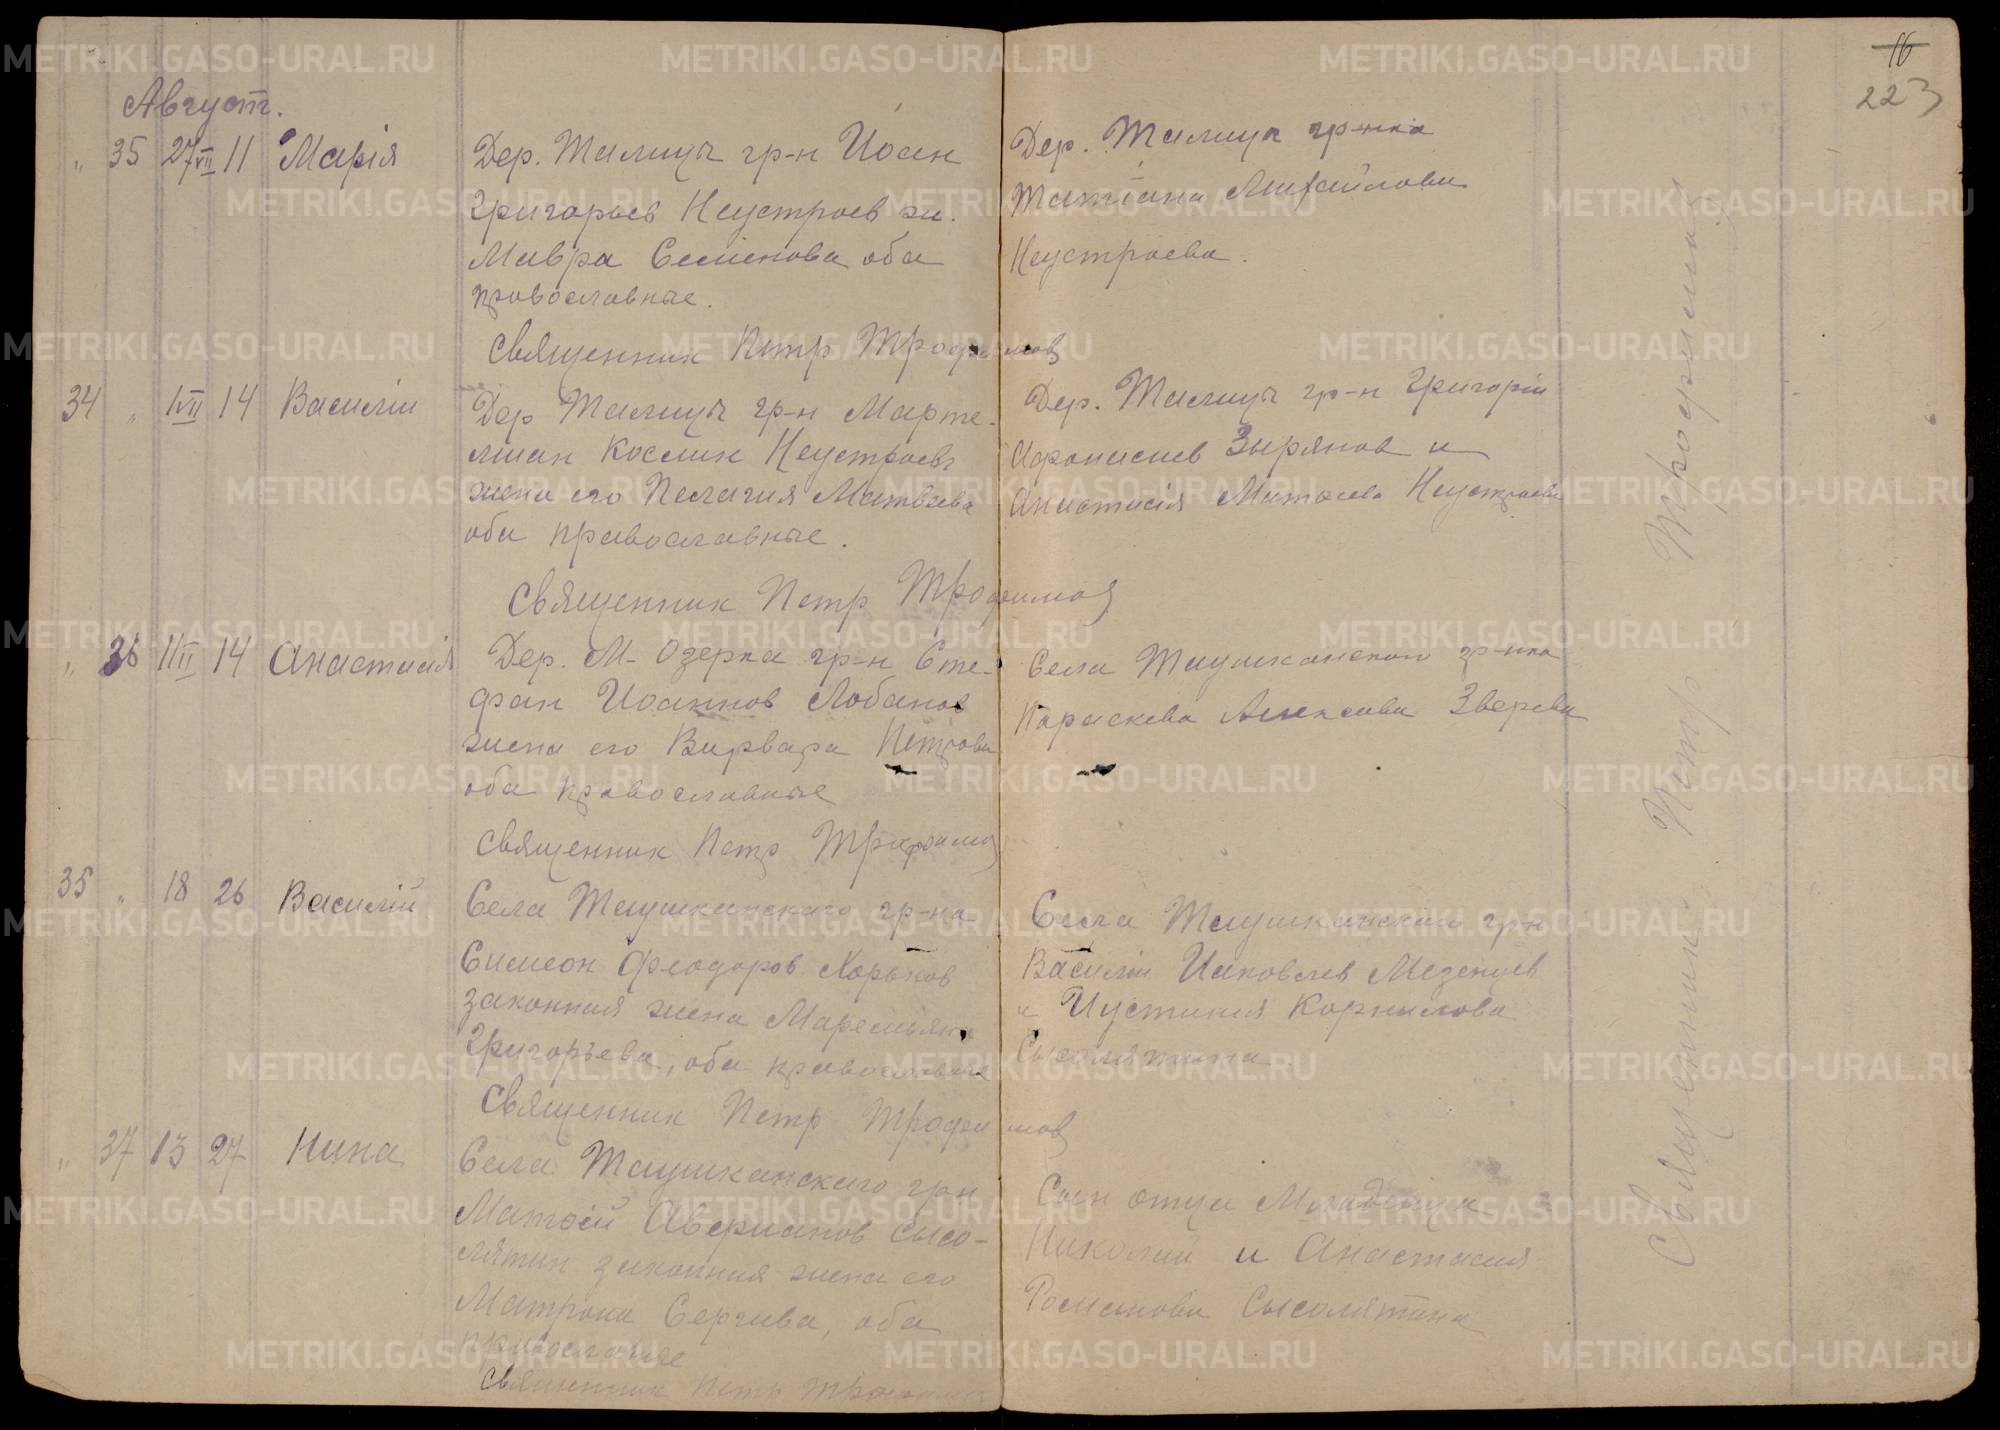 16
223
Август.
„ 35 27 VII 11 Марія
Дер. Талицы гр-н Иоан
Григорьев Неустроев жи.
Мавра Семенова оба
православные.
Священник Петр Трофимов
Дер. Талицы гр-нка
Татіана Михайлова
Неустроева.
34 „ 1 VII 14 Василій
Дер Талицы гр-н Марте-
миан Космин Неустроевъ
жена его Пелагия Матвеева
оба православные.
Священник Петр Трофимов
Дер. Талицы гр-н Григорій
Афонасиев Зырянов и
Анастасія Неустроева
„ 36 14 Анастасія
Дер. М-Озерка гр-н Сте-
фан Иоаннов Лобанов
жена его Варвара Петрова
оба православные
Священник Петр Трофимов
Села Таушканского гр-нка
Параскева Алексеева Зверева
35 „ 18 26 Василій
Села Таушканскаго гр-на
Симеон Феодоров Хорьков
законная жена Маремьяна
Григорьева, оба православные
Священник Петр Трофимов
Села Таушканскаго гр-н
Василій Иаковлев Мезенцев
и Иустиния Корнилова
Сысолятина
„ 37 13 27 Нина
Села Таушканскаго гр-н
Матфей Аверианов Сысо-
лятин законная жена его
Матрона Сергиева, оба
православные
Священник Петр Трофимов
Сын отца Младенца
Николай и Анастасия
Романова Сысолятина
Священник Петр Трофимов
METRIKI.GASO-URAL.RU